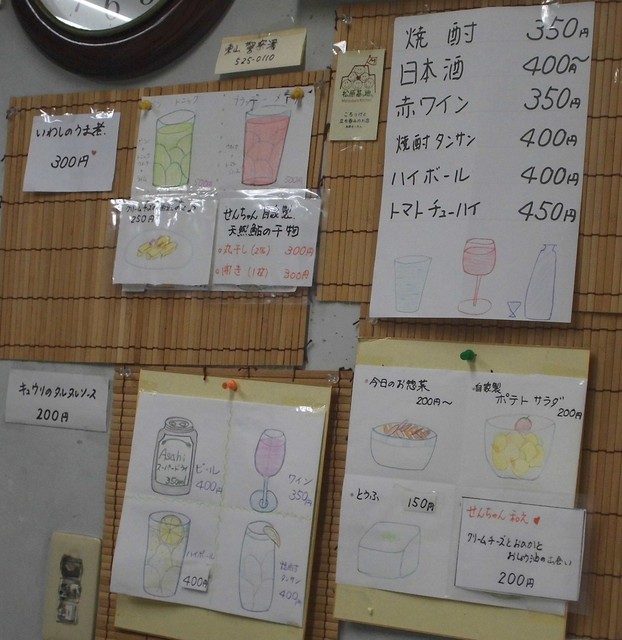 525-0110
焼酎 350円
日本酒 400円~
赤ワイン 350円
焼酎タンサン 400円
ハイボール 400円
トマトチューハイ 450円
いわしのうま煮
300円
250円
せんちゃん自家製
天然鮎の干物
丸干し(2匹) 300円
開き(1枚) 300円
キュウリのタルタルソース
200円
Asahi
スーパードライ
350ml
ビール
400円
ワイン
350円
ハイボール
400円
焼酎
タンサン
400円
今日のお惣菜
200円~
自家製
ポテトサラダ
200円
とうふ 150円
せんちゃん和え
クリームチーズとおかかと
200円